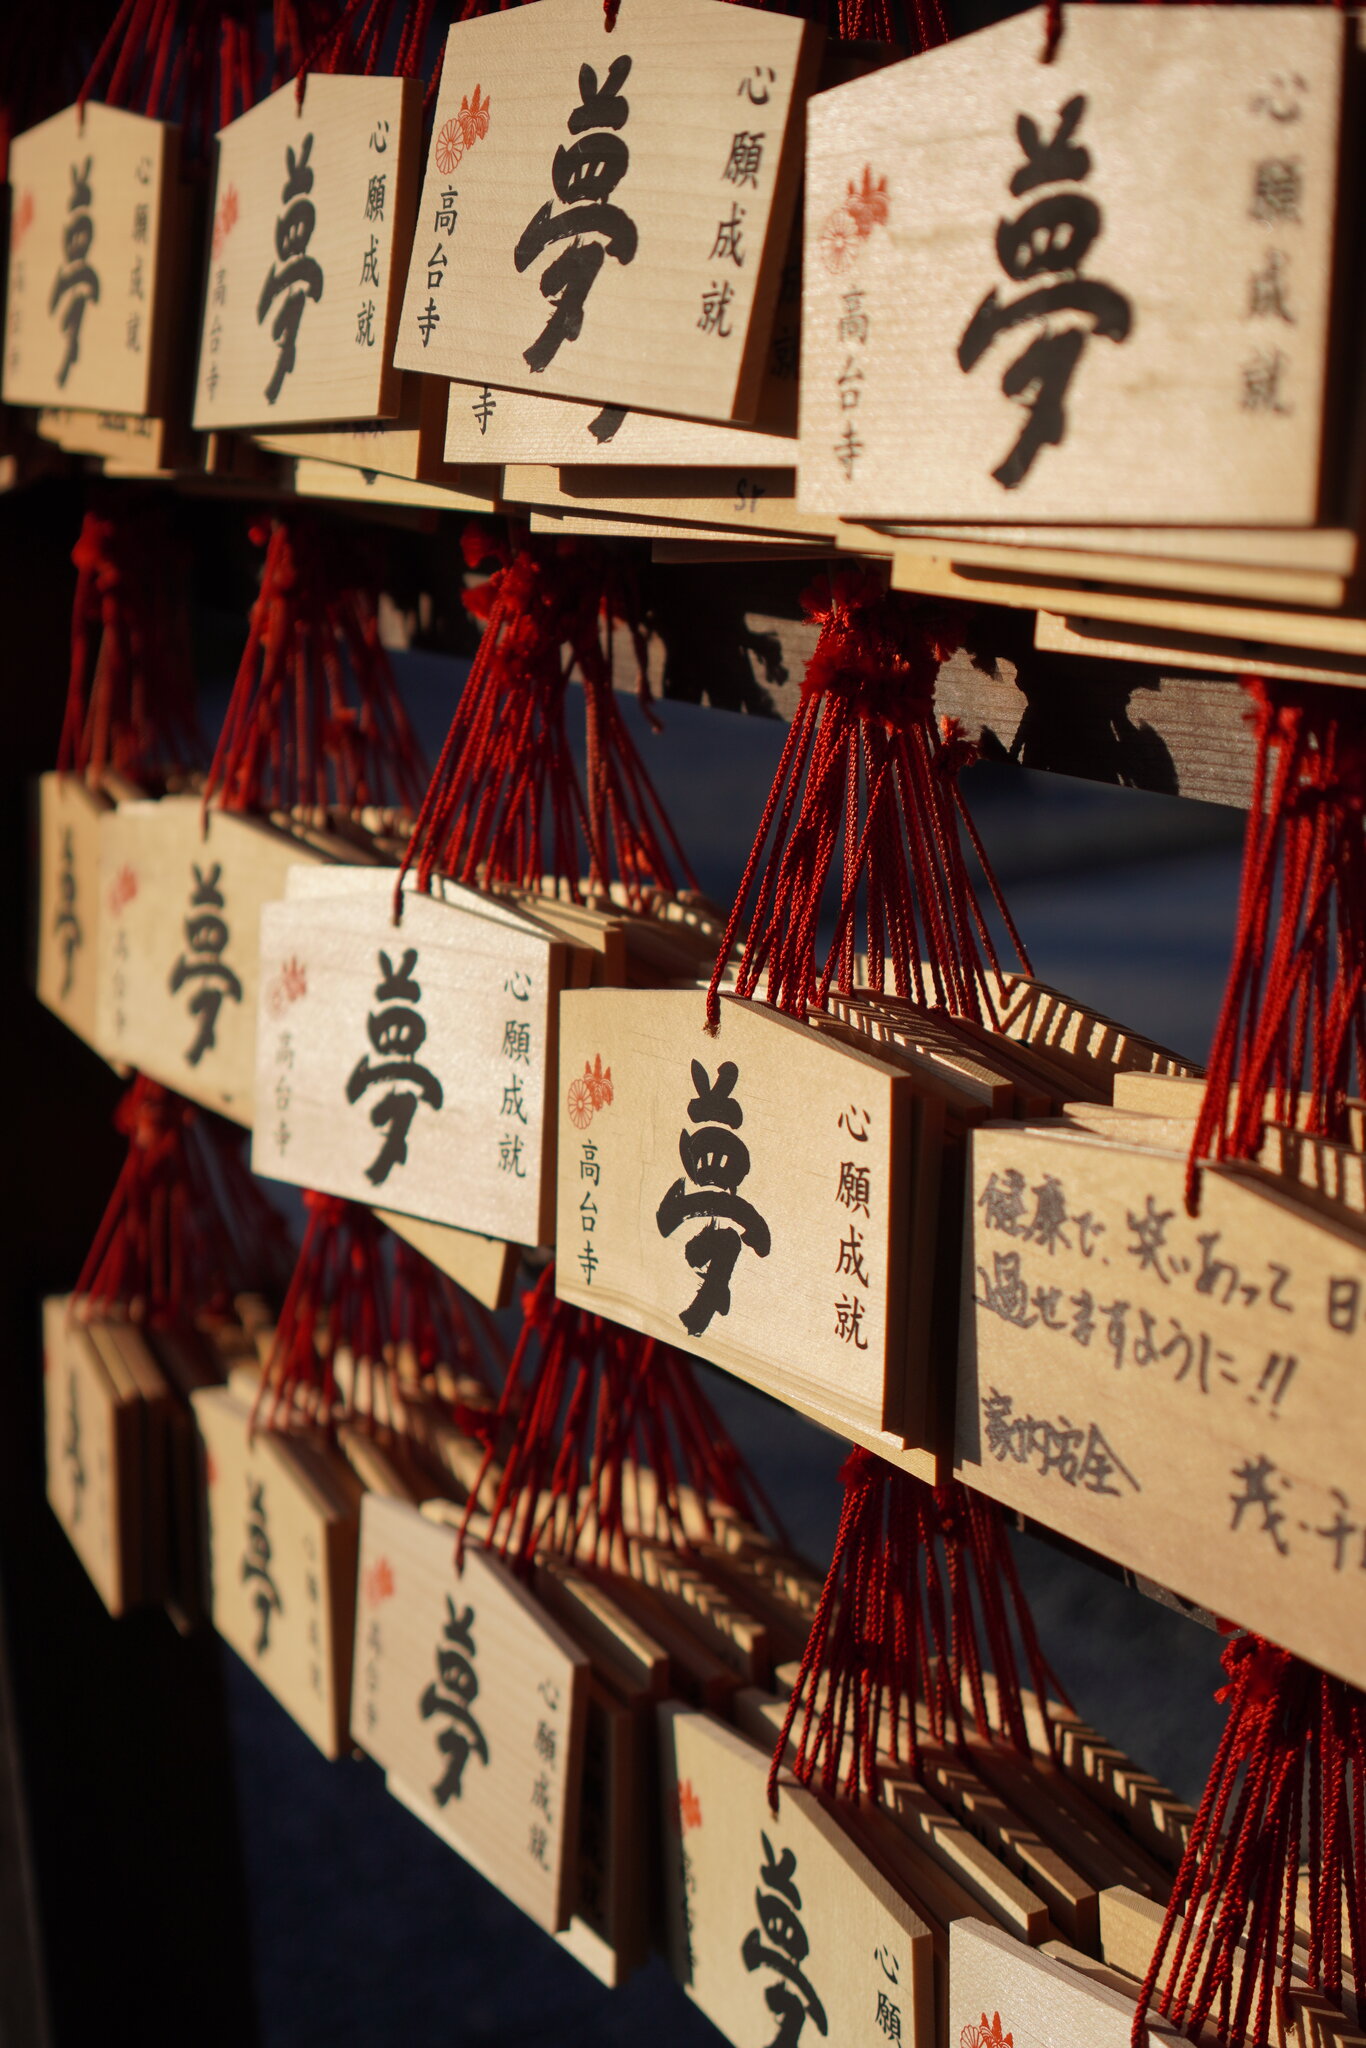 心願成就
夢
高台寺
心願成就
夢
高台寺
心願成就
夢
高台寺
心願成就
夢
高台寺
寺
sr
夢
夢
心願成就
夢
高台寺
心願成就
夢
高台寺
健康で、笑いあって 日
過せますように!!
家内安全
茂・千
夢
夢
心願成就
夢
心願
夢